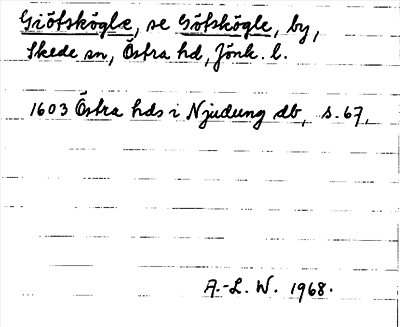 Giötskögle, se Götskögle, by,
Skede sn, Östra hd, Jönk. l.
1603 Östra hds i Njudung db, s. 67.
A.-L. W. 1968.